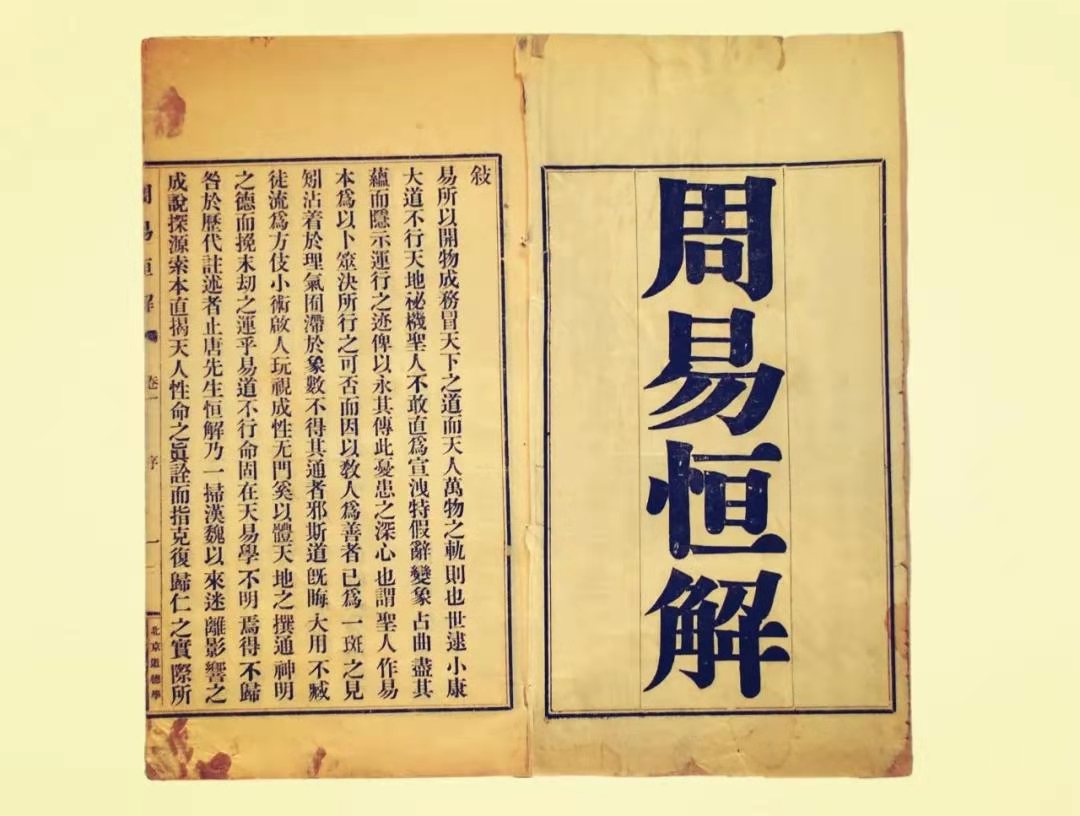 周易恒解
敍
易所以開物成務冒天下之道而天人萬物之軌則也世逮小康
大道不行天地祕機聖人不敢直爲宣洩特假辭變象占曲盡其
蘊而隱示運行之迹俾以永其傳此憂患之深心也謂聖人作易
本爲以卜筮決所行之可否而因以敎人爲善者已爲一斑之見
矧沾着於理氣囿滯於象數不得其通者邪斯道旣晦大用不臧
徒流爲方伎小術啟人玩視成性无門奚以體天地之撰通神明
之德而挽末刼之運乎易道不行命固在天易學不明焉得不歸
咎於歷代註述者止唐先生恒解乃一掃漢魏以來迷離影響之
成說探源索本直揭天人性命之眞詮而指克復歸仁之實際所
周易恒解 卷一 序 一 北京道德學